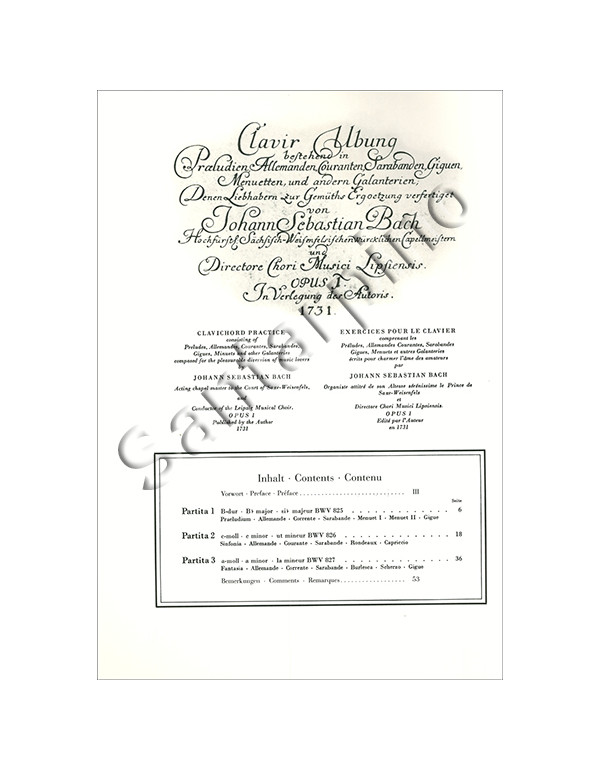 Clavir Ubung
bestehend in
Præludien, Allemanden, Couranten, Sarabanden, Giguen,
Menuetten, und andern Galanterien;
Denen Liebhabern zur Gemüths Ergoetzung verfertiget
von
Johann Sebastian Bach
Hochfürstl. Sächsisch-Weisenfelsischen würcklichen Capellmeistern
und
Directore Chori Musici Lipsiensis.
OPUS I.
In Verlegung des Autoris.
1731.
CLAVICHORD PRACTICE
consisting of
Preludes, Allemandes, Courantes, Sarabandes,
Gigues, Minuets and other Galanteries
composed for the pleasurable diversion of music lovers
by
JOHANN SEBASTIAN BACH
Acting chapel master to the Court of Saxe-Weisenfels,
and
Conductor of the Leipzig Musical Choir,
OPUS 1
Published by the Author
1731
EXERCICES POUR LE CLAVIER
comprenant les
Préludes, Allemandes Courantes, Sarabandes,
Gigues, Menuets et autres Galanteries
écrits pour charmer l'âme des amateurs
par
JOHANN SEBASTIAN BACH
Organiste attitré de son Altesse sérénissime le Prince de
Saxe-Weisenfels
et
Directore Chori Musici Lipsiensis.
OPUS 1
Edité par l'Auteur
en 1731
Inhalt · Contents · Contenu
Vorwort · Preface · Préface III
Seite
Partita 1 B-dur · B♭ major · si♭ majeur BWV 825 6
Praeludium - Allemande - Corrente - Sarabande - Menuet I - Menuet II - Gigue
Partita 2 c-moll · c minor · ut mineur BWV 826 18
Sinfonia - Allemande - Courante - Sarabande - Rondeaux - Capriccio
Partita 3 a-moll · a minor · la mineur BWV 827 36
Fantasia - Allemande - Corrente - Sarabande - Burlesca - Scherzo - Gigue
Bemerkungen · Comments · Remarques 53